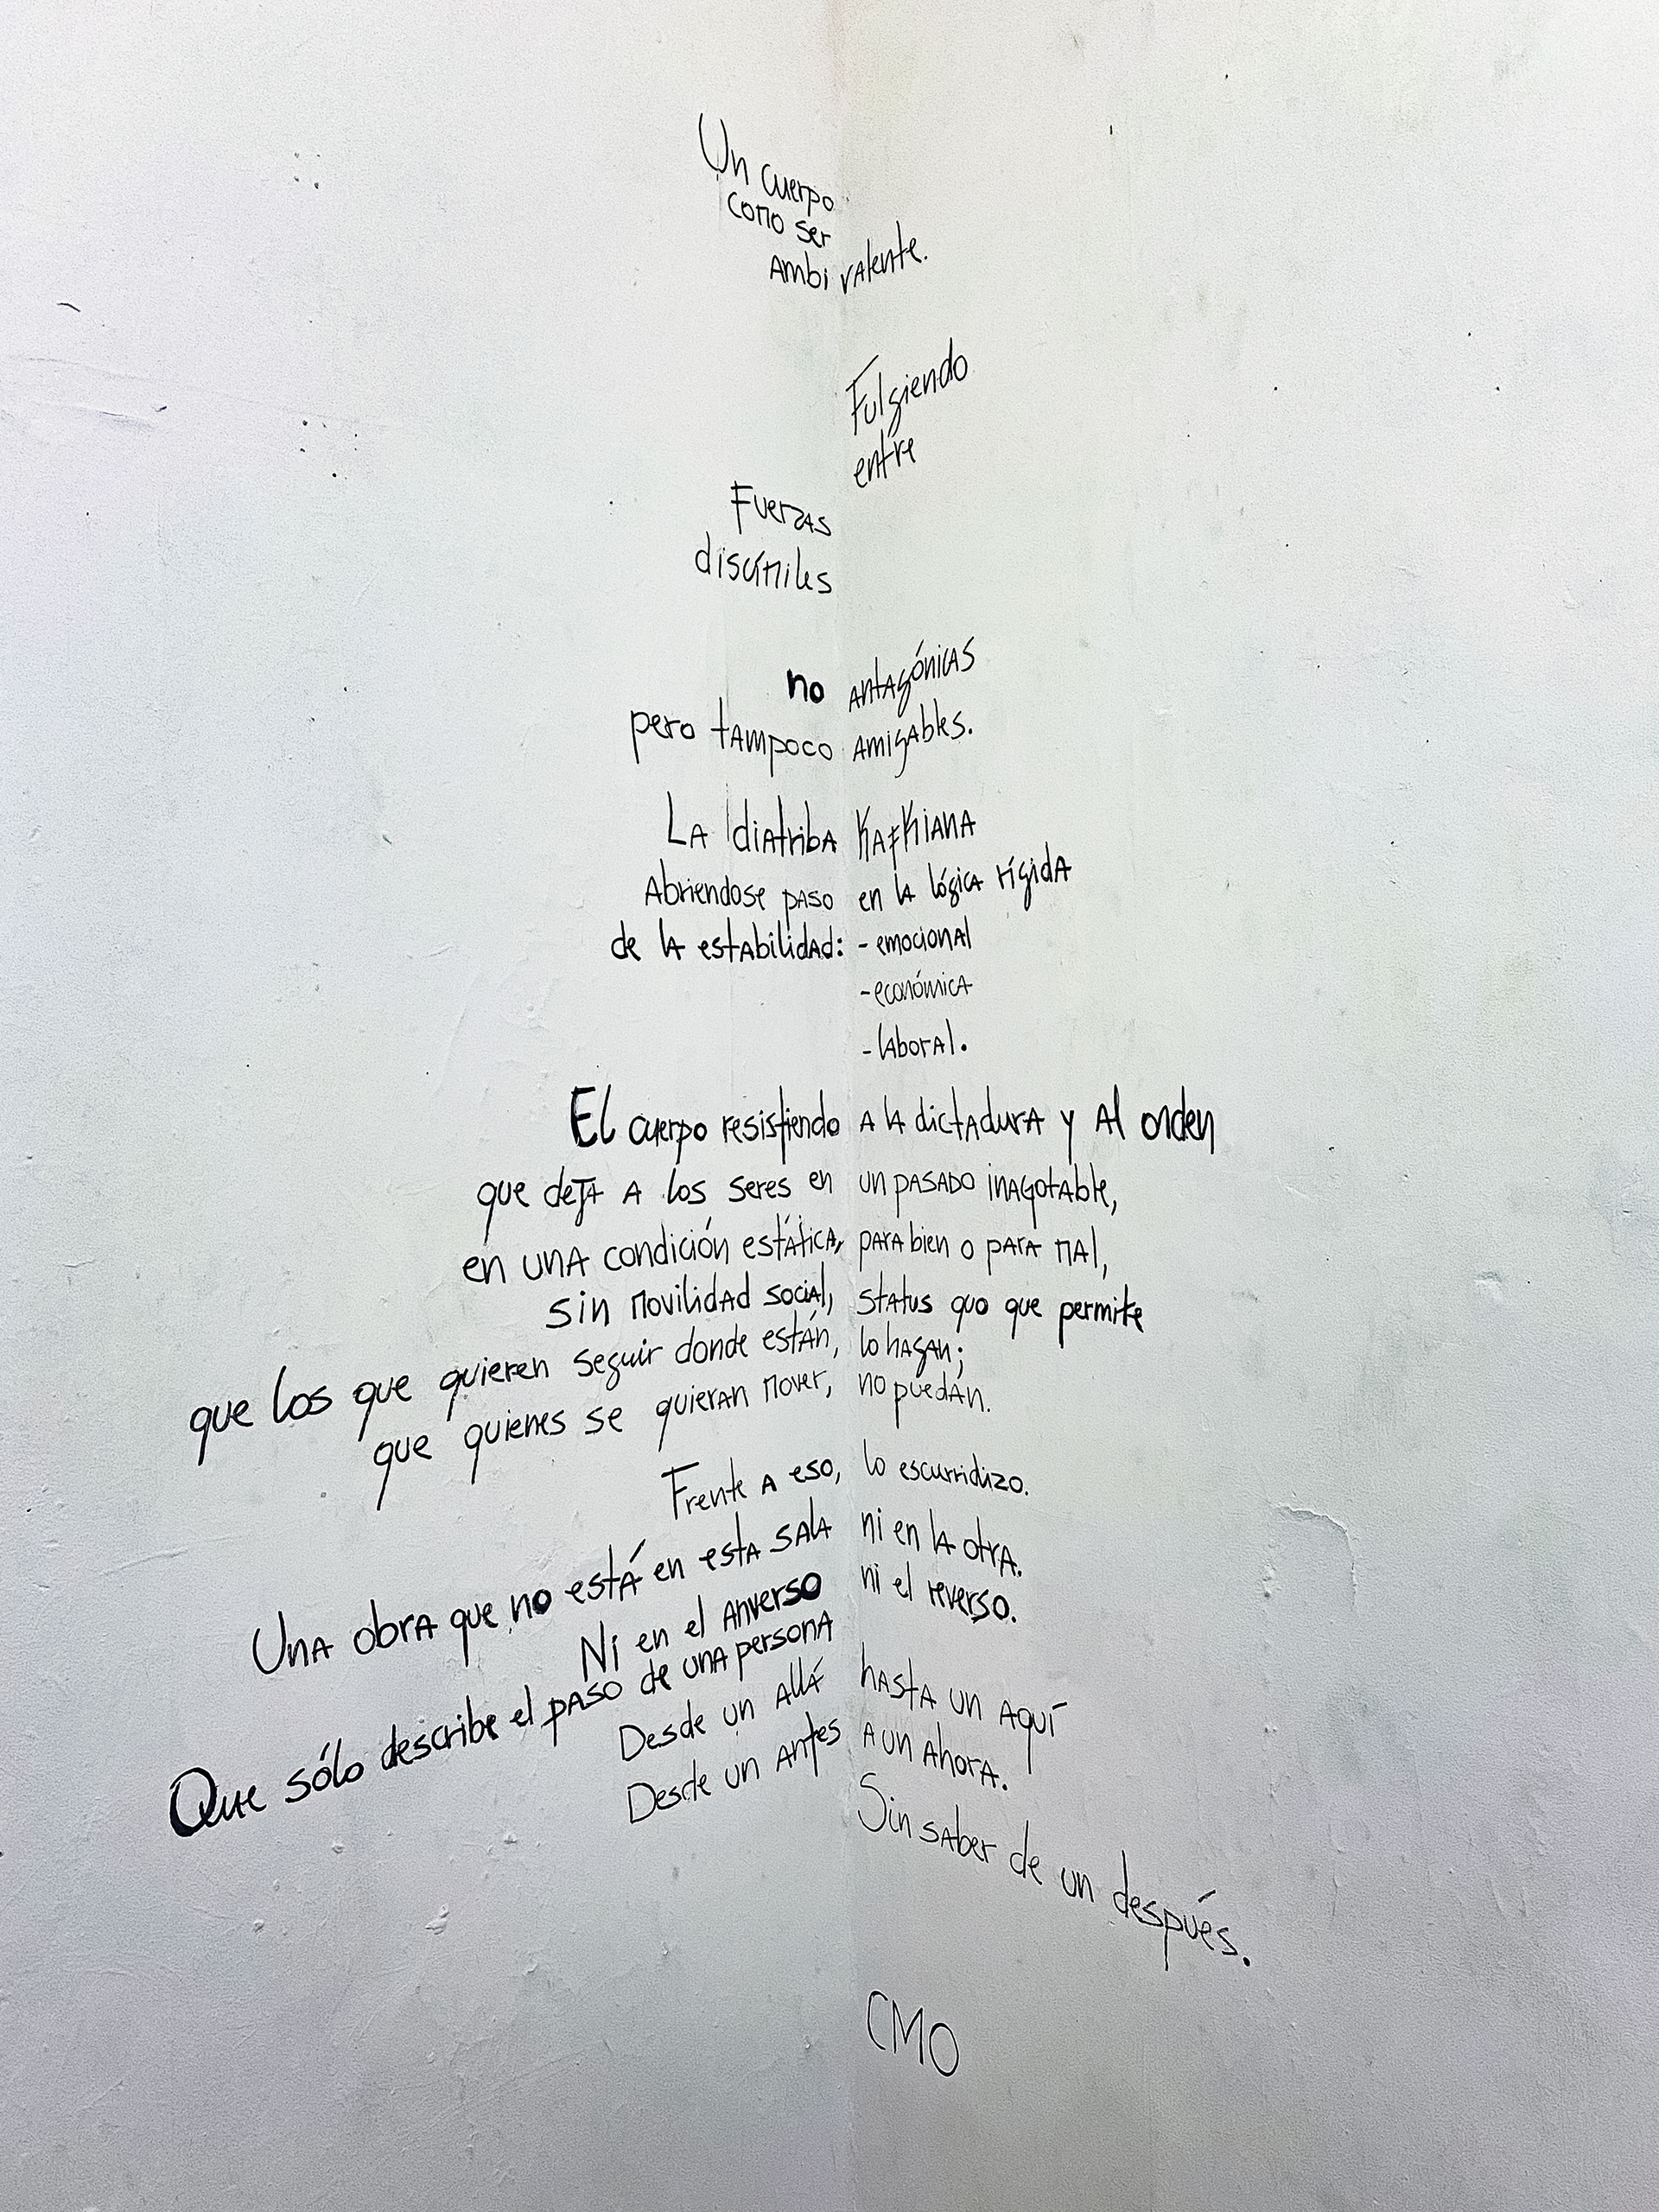 Un cuerpo
como ser
Ambi valente.
Fulgiendo
entre
Fuerzas
discímiles
no antagónicas
pero tampoco amigables.
La diatriba Kafkiana
Abriendose paso en la lógica rígida
de la estabilidad: - emocional
- económica
- laboral.
El cuerpo resistiendo a la dictadura y al orden
que deja a los seres en un pasado inagotable,
en una condición estática, para bien o para mal,
sin movilidad social, status quo que permite
que los que quieren seguir donde están, lo hagan;
que quienes se quieran mover, no puedan.
Frente a eso, lo escurridizo.
Una obra que no está en esta sala ni en la otra.
Ni en el anverso ni el reverso.
Que sólo describe el paso de una persona
Desde un allá hasta un aquí
Desde un antes a un ahora.
Sin saber de un después.
CMO